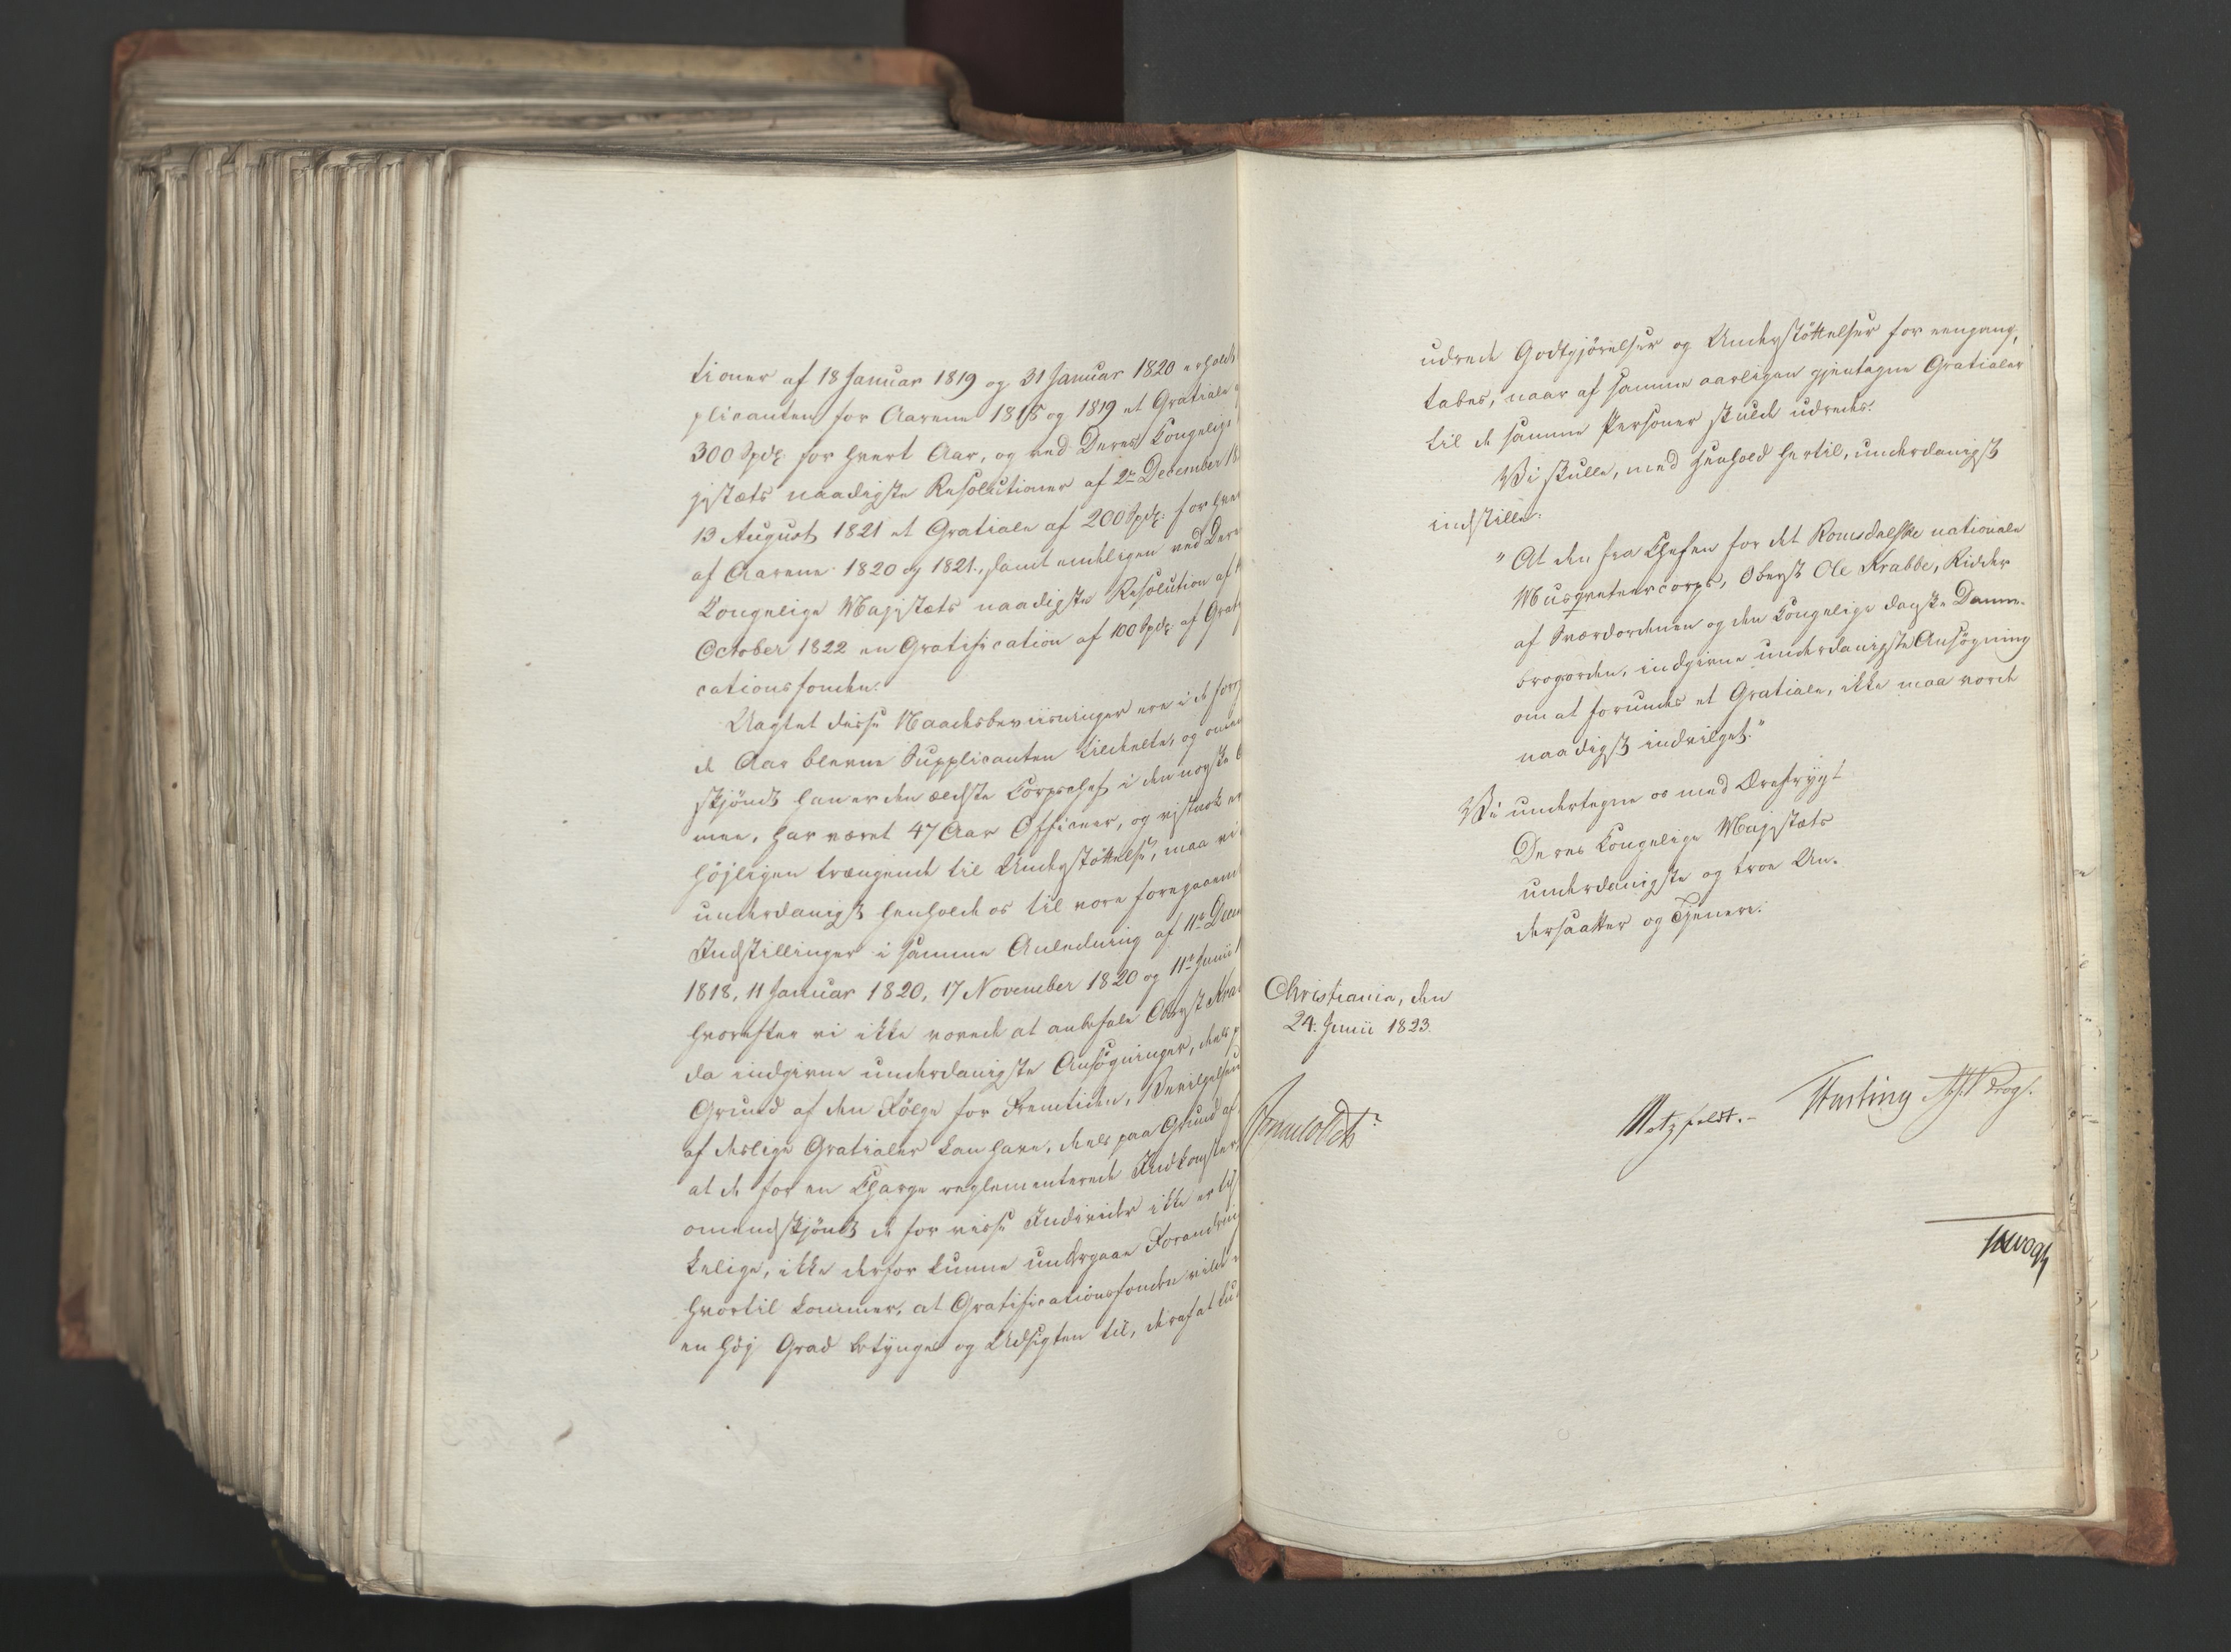 tioner af 18 Januar 1819 og 31 Januar 1820 erholdt
plicanten for Aarene 1818 og 1819 et Gratiale
300 Spdr. for hvert Aar, og ved Deres Kongelige
jestæts naadigste Resolutioner af 2den December 18
13 August 1821 et Gratiale af 200 Spdr. for hver
af Aarene 1820 og 1821, samt endeligen ved Deres
Kongelige Majestæts naadigste Resolution af
October 1822 en Gratification af 100 Spdr. af Grati
cationsfonden.
Uagtet disse Naadesbeviisninger ere i de forr
e Aar blevne Supplicanten tildeelte, og omend
skjöndt han er den ældste Corpschef i den norske
mee, har været 47 Aar Officeer, og vistnok er
höjligen trængende til Understöttelse, maa vi
underdanigst henholde os til vore foregaaende
Indstillinger i samme Anledning af 11te Decem
1818, 11 Januar 1820, 17 November 1820 og 11te Junii
hvorefter vi ikke vovede at anbefale Oberst Krab
da indgivne underdanigste Ansögninger, deels p
Grund af den Fölge for Fremtiden, Bevilgelsen
af deslige Gratialer kan have, deels paa Grund af
at de for en Charge reglementerede Indkomster
omendskjöndt de for visse Individer ikke er til
kelige, ikke derfor kunne undergaae Forandring
hvortil kommer, at Gratificationsfonden vilde
en höj Grad betynges og Udsigten til, deraf at ku
udrede Godtgjörelser og Understöttelser for eengang,
tabes, naar af samme aarligen gjentagne Gratialer
til de samme Personer skulde udredes.
Vi skulle, med Henhold hertil, underdanigst
indstille:
"At den fra Chefen for det Romsdalske nationale
Musqueteercorps, Oberst Ole Krabbe, Ridder
af Sværdordenen og den Kongelige danske Danne-
brogorden, indgivne underdanigste Ansögning
om at forundes et Gratiale, ikke maa vorde
naadigst indvilget."
Vi undertegne os med Ærefrygt
Deres Kongelige Majestæts
underdanigste og troe Un-
dersaatter og Tjenere.
Christiania, den
24. Junii 1823.
Motzfeldt.- Hasting Krog.